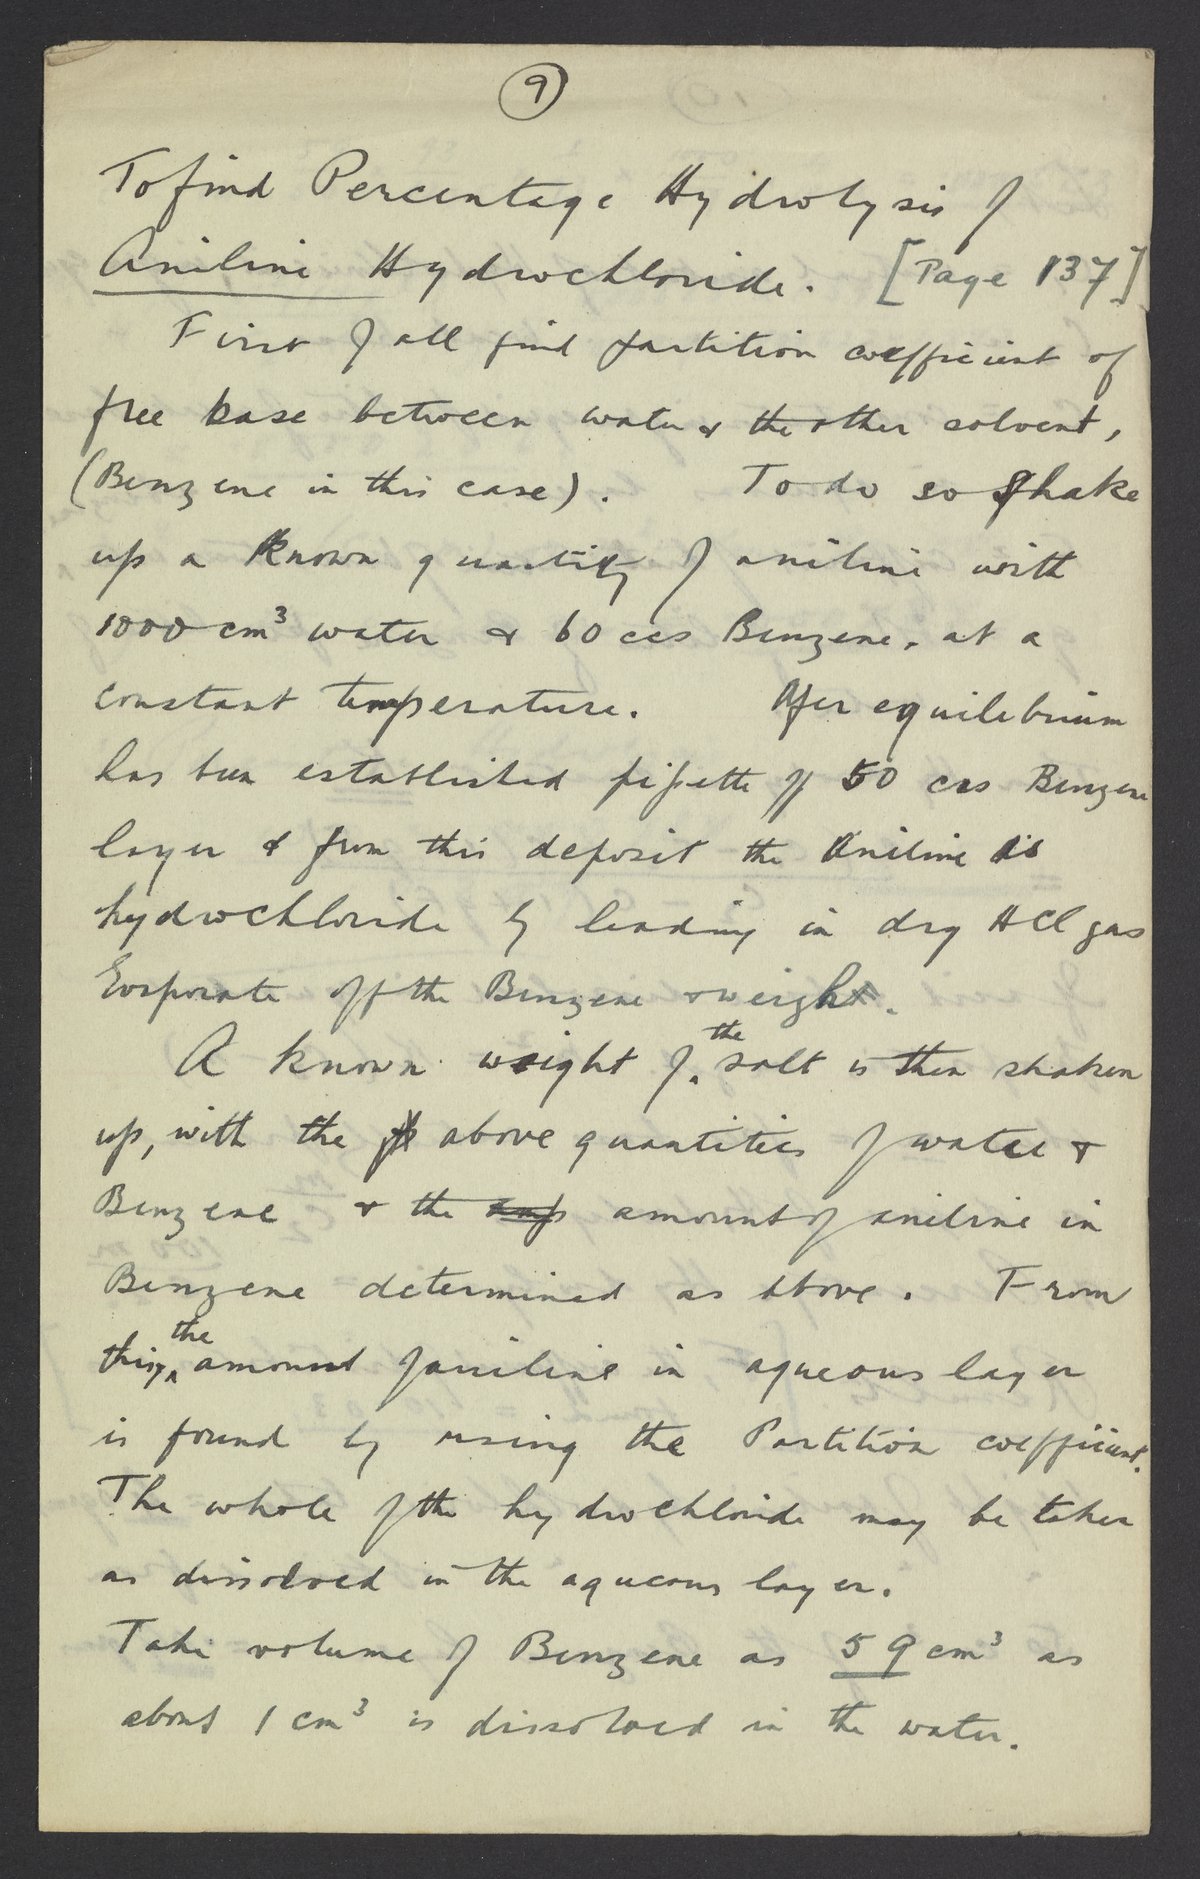 9
To find Percentage Hydrolysis of
Aniline Hydrochloride. [Page 137]
First of all find partition coefficient of
free base between water & the other solvent,
(Benzene in this case). To do so shake
up a known quantity of aniline with
1000 cm³ water & 60 ccs Benzene, at a
constant temperature. After equilibrium
has been established pipette off 50 ccs Benzene
layer & from this deposit the Aniline as
hydrochloride by leading in dry HCl gas
Evaporate off the Benzene & weigh.
A known weight of the salt is then shaken
up, with the above quantities of water &
Benzene & the amount of aniline in
Benzene determined as above. From
this, the amount of aniline in aqueous layer
is found by using the Partition coefficient.
The whole of the hydrochloride may be taken
as dissolved in the aqueous layer.
Take volume of Benzene as 59 cm³ as
about 1 cm³ is dissolved in the water.